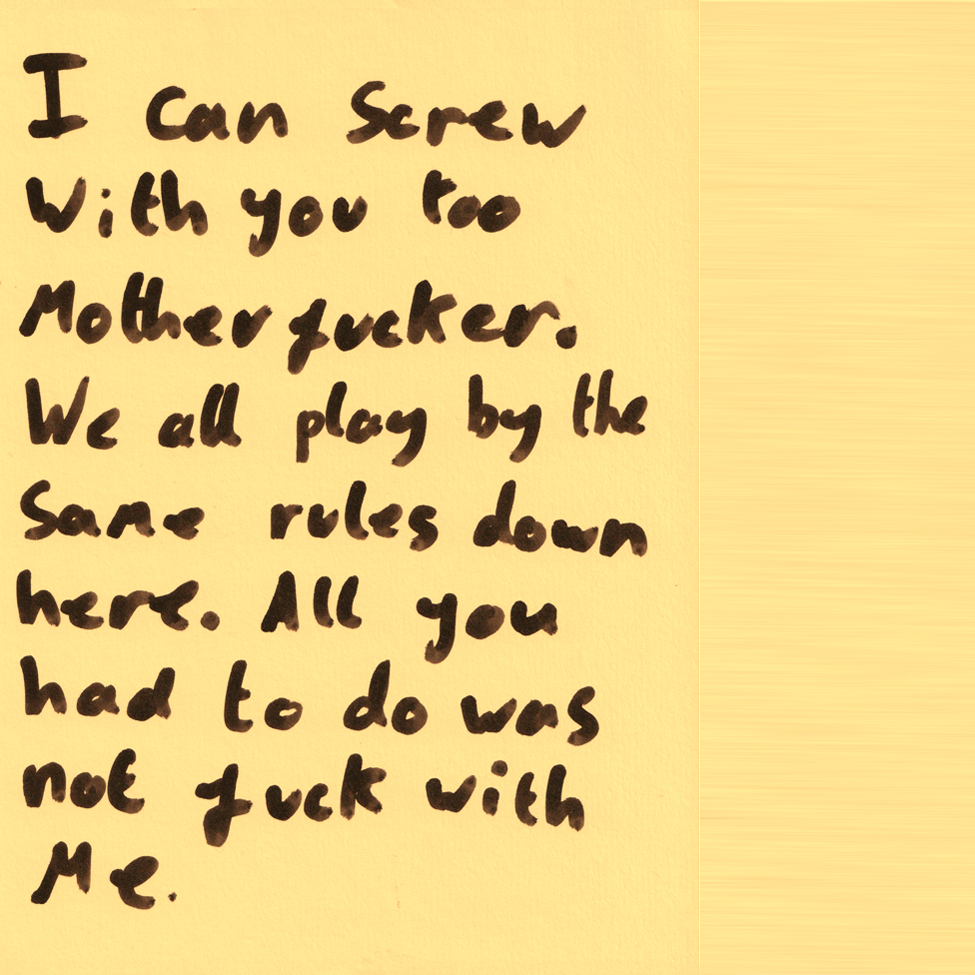 I can screw
With you too
Motherfucker.
We all play by the
Same rules down
here. All you
had to do was
not fuck with
Me.